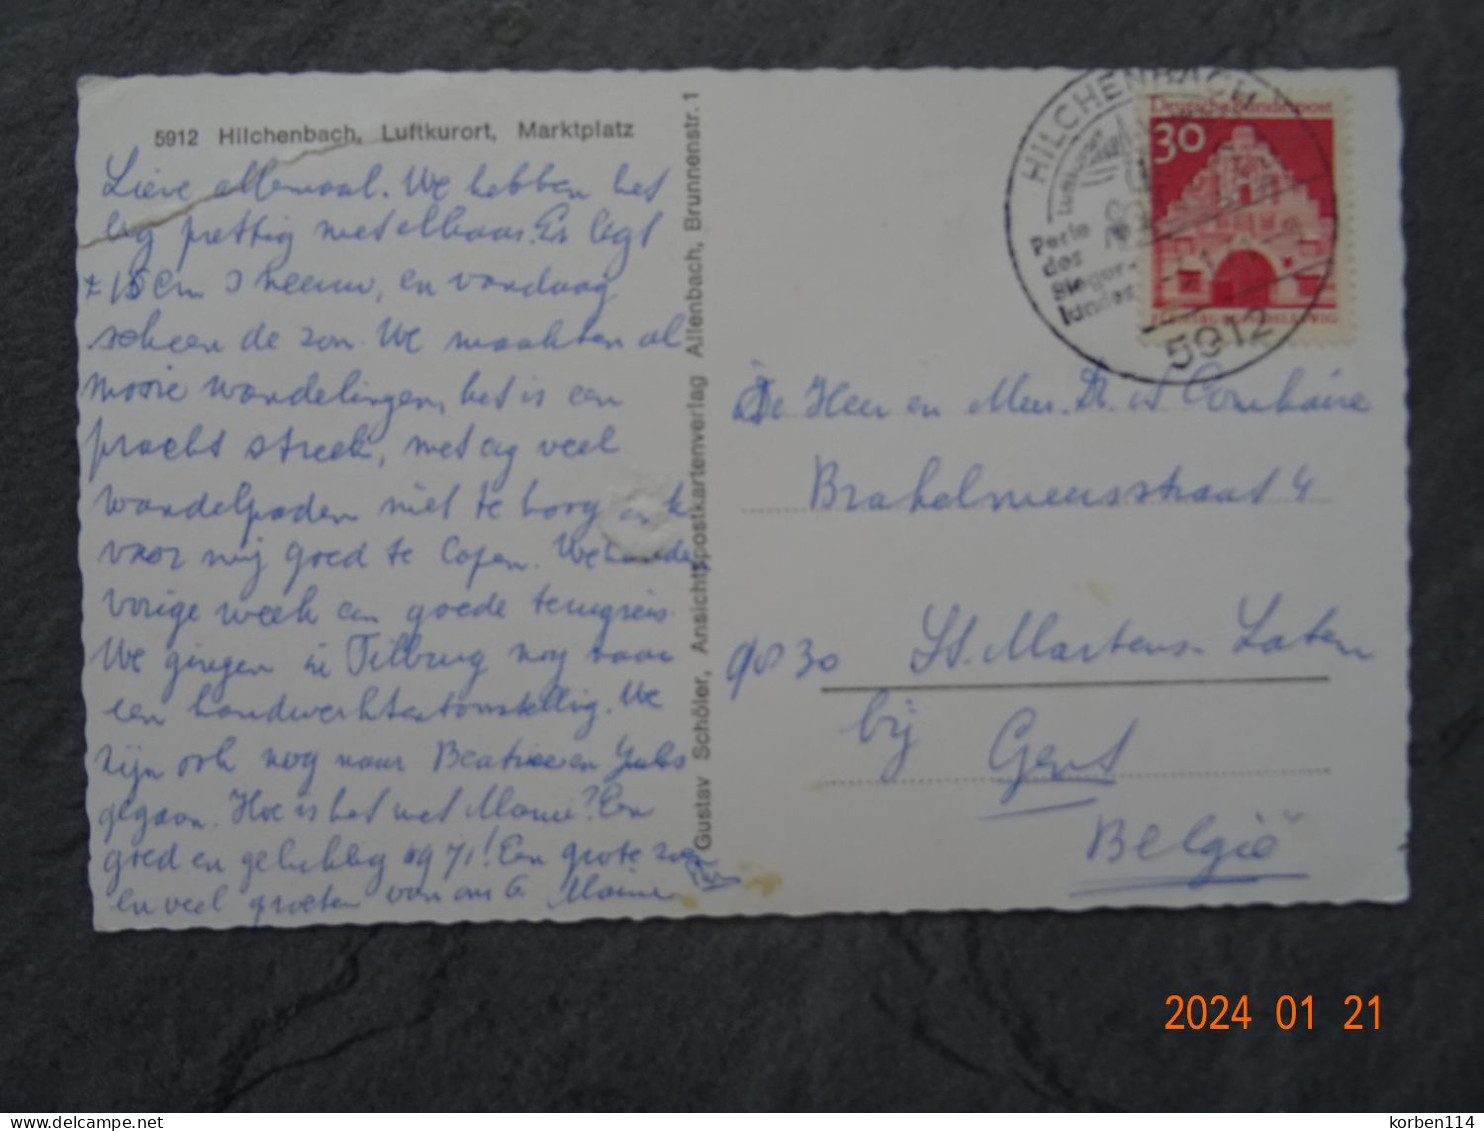 5912 Hilchenbach, Luftkurort, Marktplatz
Lieve allemaal. We hebben het
erg prettig met elkaar. Er ligt
± 15 cm sneeuw, en vandaag
scheen de zon. We maakten al
mooie wandelingen, het is een
pracht streek, met erg veel
wandelpaden niet te hoog ook
voor mij goed te lopen. We hadden
vorige week een goede terugreis.
We gingen in Tilburg nog naar
een handwerktentoonstelling. We
zijn ook nog naar Beatrice en
gegaan. Hoe is het met Mamie? Een
goed en gelukkig 1971! Een grote zoen
en veel groeten van ons
Gustav Schöler, Ansichtspostkartenverlag Allenbach, Brunnenstr. 1
HILCHENBACH
Luftkurort
Perle
des
Sieger-
landes
5912
Deutsche Bundespost
30
FLENSBURG/SCHLESWIG
De Heer en Mevr. Dr.
4
9830 St. Martens-Laten
bij Gent
België
2024 01 21
korben114